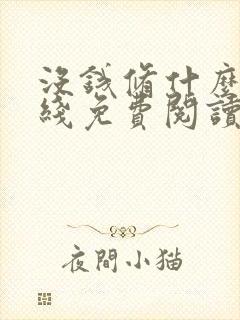 沒錢脩什麼
綫免費閱讀
夜間小猫